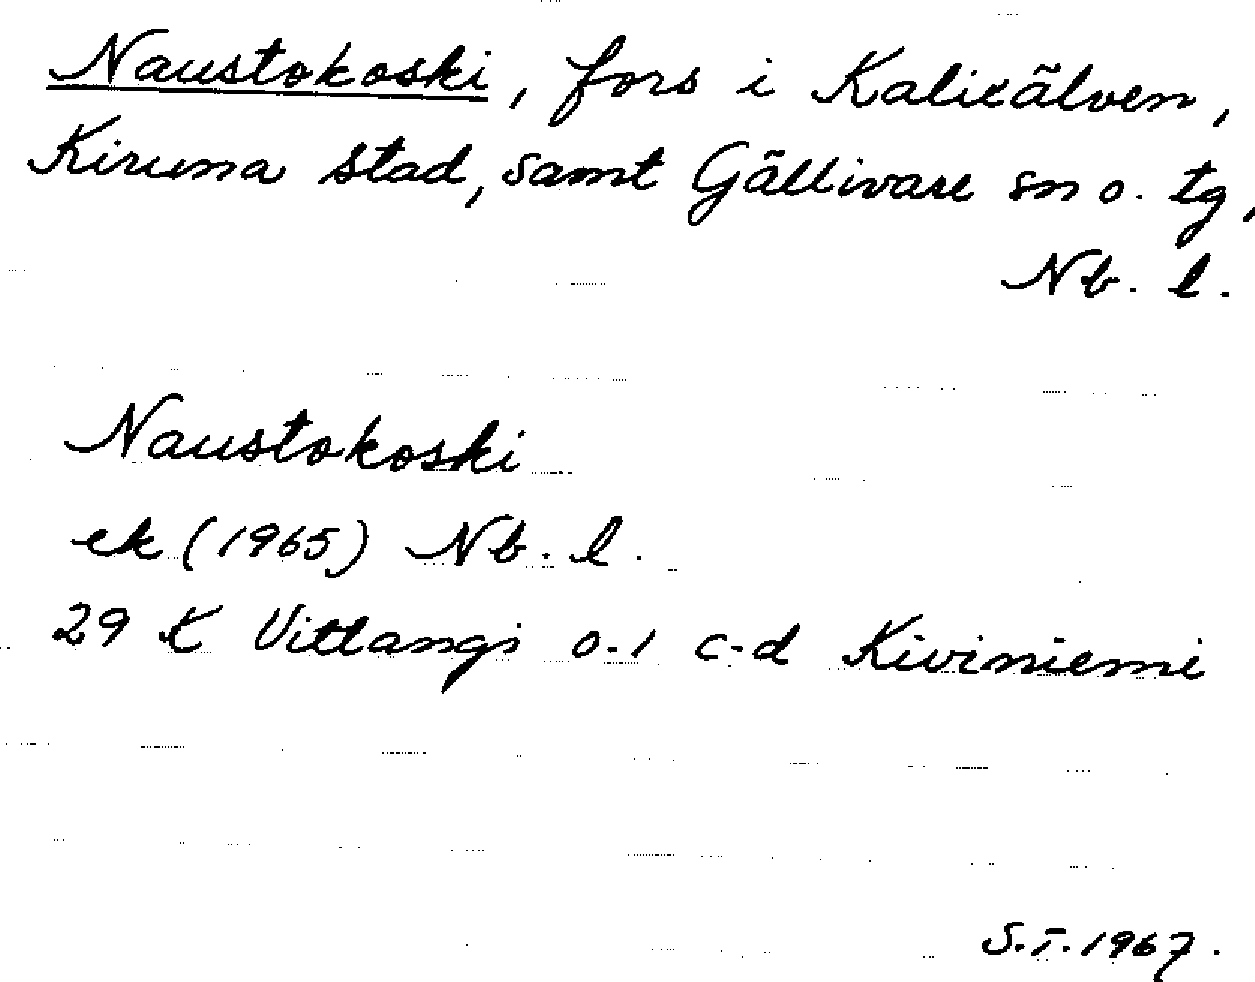 Naustokoski, fors i Kalixälven,
Kiruna stad, samt Gällivare sn o. tg,
Nb. l.
Naustokoski
ek (1965) Nb. l.
29 K Vittangi 0-1 c-d Kiviniemi
S.I. 1967.